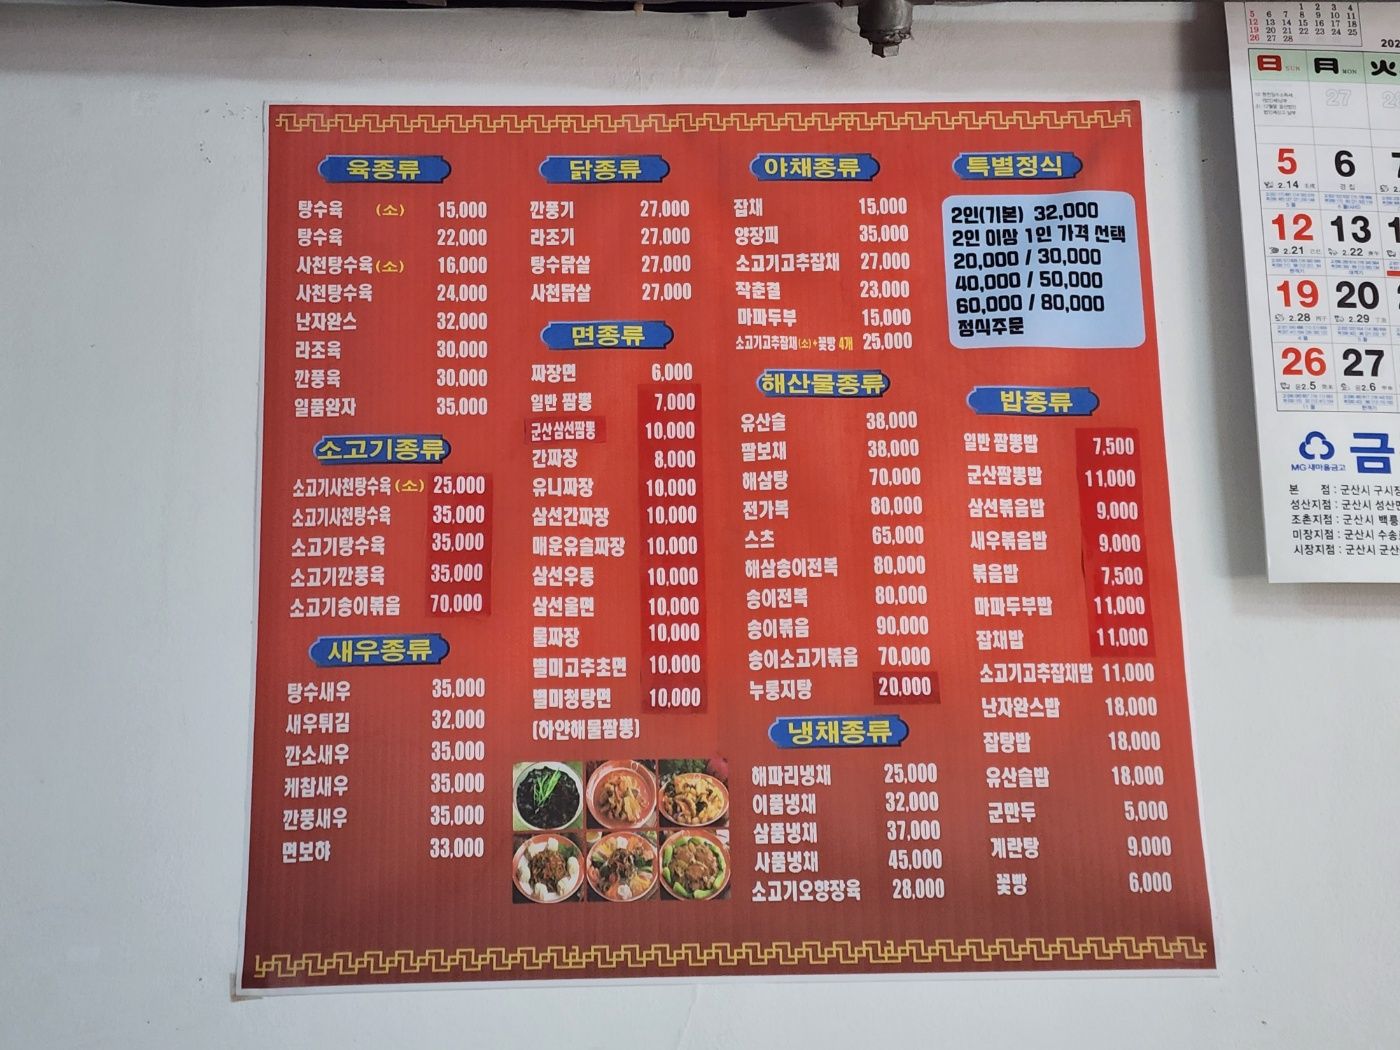 육종류
탕수육 (소) 15,000
탕수육 22,000
사천탕수육(소) 16,000
사천탕수육 24,000
난자완스 32,000
라조육 30,000
깐풍육 30,000
일품완자 35,000
소고기종류
소고기사천탕수육(소) 25,000
소고기사천탕수육 35,000
소고기탕수육 35,000
소고기깐풍육 35,000
소고기송이볶음 70,000
새우종류
탕수새우 35,000
새우튀김 32,000
깐소새우 35,000
케찹새우 35,000
깐풍새우 35,000
면보하 33,000
닭종류
깐풍기 27,000
라조기 27,000
탕수닭살 27,000
사천닭살 27,000
면종류
짜장면 6,000
일반 짬뽕 7,000
군산삼선짬뽕 10,000
간짜장 8,000
유니짜장 10,000
삼선간짜장 10,000
매운유슬짜장 10,000
삼선우동 10,000
삼선울면 10,000
물짜장 10,000
별미고추초면 10,000
별미청탕면 10,000
(하얀해물짬뽕)
야채종류
잡채 15,000
양장피 35,000
소고기고추잡채 27,000
작춘결 23,000
마파두부 15,000
소고기고추잡채(소)+꽃빵 4개 25,000
해산물종류
유산슬 38,000
팔보채 38,000
해삼탕 70,000
전가복 80,000
스츠 65,000
해삼송이전복 80,000
송이전복 80,000
송이볶음 90,000
송이소고기볶음 70,000
누룽지탕 20,000
냉채종류
해파리냉채 25,000
이품냉채 32,000
삼품냉채 37,000
사품냉채 45,000
소고기오향장육 28,000
특별정식
2인(기본) 32,000
2인 이상 1인 가격 선택
20,000 / 30,000
40,000 / 50,000
60,000 / 80,000
정식주문
밥종류
일반 짬뽕밥 7,500
군산짬뽕밥 11,000
삼선볶음밥 9,000
새우볶음밥 9,000
볶음밥 7,500
마파두부밥 11,000
잡채밥 11,000
소고기고추잡채밥 11,000
난자완스밥 18,000
잡탕밥 18,000
유산슬밥 18,000
군만두 5,000
계란탕 9,000
꽃빵 6,000
1 2 3 4
5 6 7 8 9 10 11
12 13 14 15 16 17 18
19 20 21 22 23 24 25
26 27 28
202
日 SUN 月 MON 火
27
5 6
2.14
12 13
2.21 2.22
19 20
2.28 2.29
26 27
윤2.5 윤2.6
MG새마을금고 금
본 점 : 군산시 구시장
성산지점 : 군산시 성산면
조촌지점 : 군산시 백릉
미장지점 : 군산시 수송
시장지점 : 군산시 군산